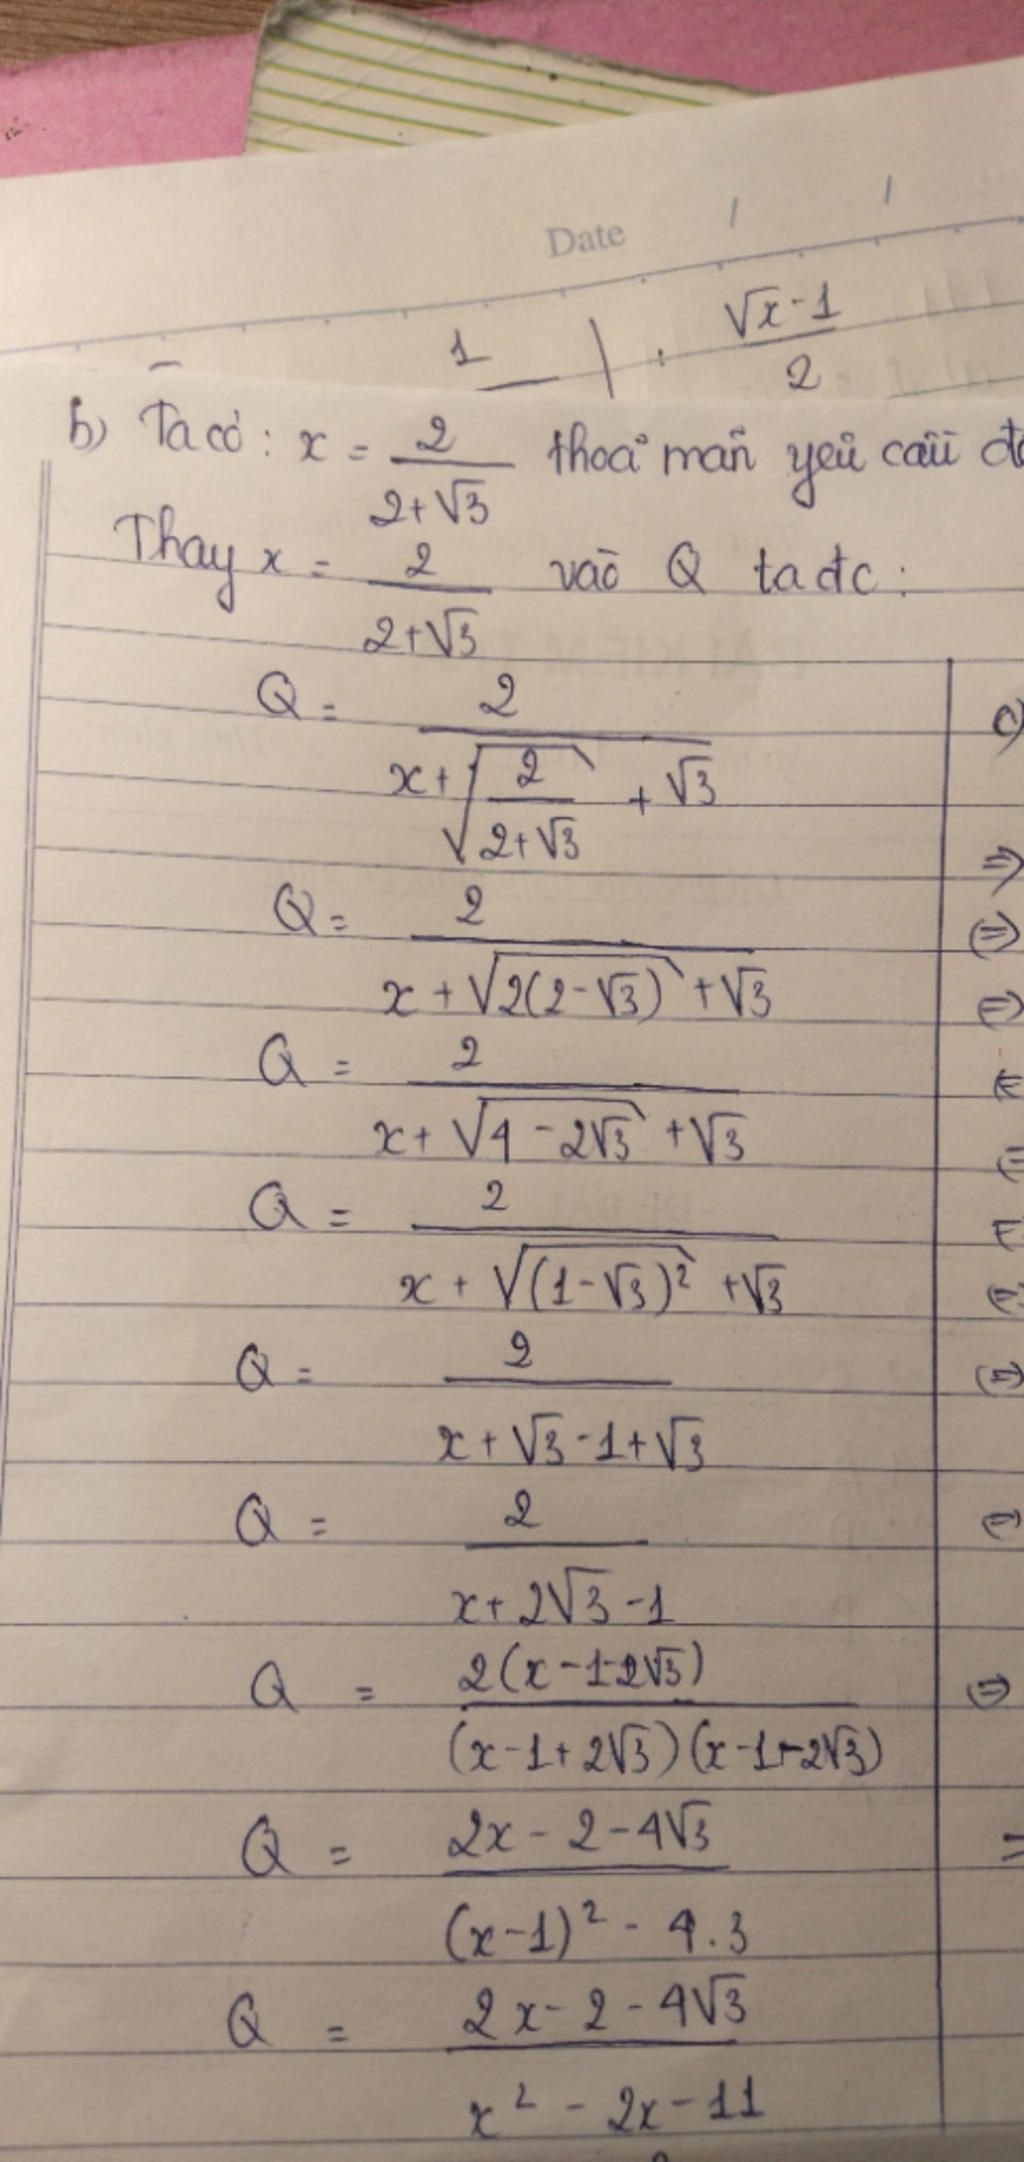 Date / /
1 | . √x-1 / 2
b) Ta có: x = 2/(2+√3) thoả mãn yêu cầu
Thay x = 2/(2+√3) vào Q ta đc:
Q = 2/(x+√(2/(2+√3)) + √3)
c)
⇒
Q = 2/(x + √(2(2-√3)) + √3)
(=)
Q = 2/(x + √(4-2√3) + √3)
Q = 2/(x + √((1-√3)²) + √3)
Q = 2/(x + √3 - 1 + √3)
(=)
Q = 2/(x + 2√3 - 1)
Q = 2(x-1-2√3)/((x-1+2√3)(x-1-2√3))
Q = (2x - 2 - 4√3)/((x-1)² - 4.3)
Q = (2x - 2 - 4√3)/(x² - 2x - 11)